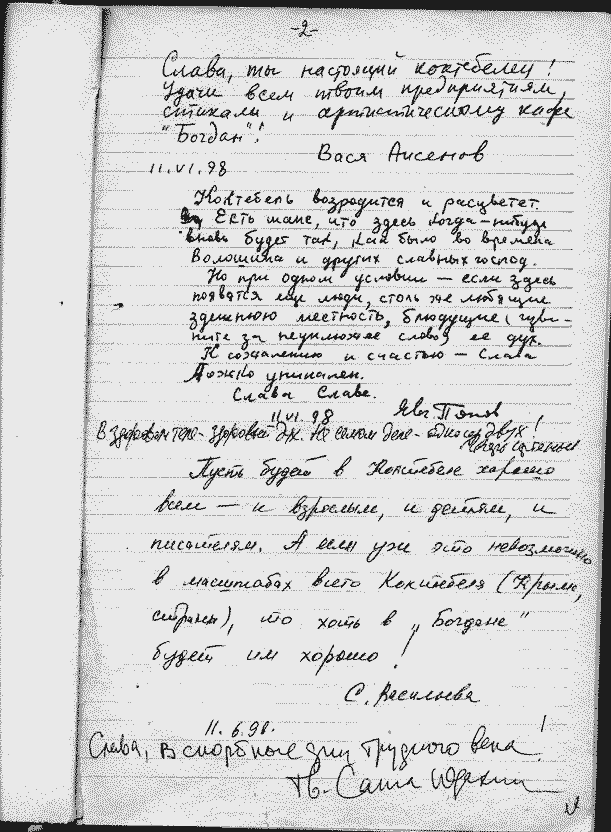 -2-
Слава, ты настоящий коктебелец!
Удачи всем твоим предприятиям,
стихам и артистическому кафе
"Богдан"!
Вася Аксенов
11.VI.98
Коктебель возродится и расцветет.
Есть шанс, что здесь когда-нибудь
вновь будет так, как было во времена
Волошина и других славных господ.
Но при одном условии — если здесь
появятся еще люди, столь же любящие
здешнюю местность, блюдущие (изви-
ните за неуклюжее слово) ее дух.
К сожалению и счастью — Слава
Ложко уникален.
Слава Славе.
11.VI.98 Попов
В здоровом теле - здоровый дух. На самом деле - одно из двух!
Пусть будет в Коктебеле хорошо
всем — и взрослым, и детям, и
писателям. А если уж это невозможно
в масштабах всего Коктебеля (Крыма,
страны), то хоть в „Богдане"
будет им хорошо!
С. Васильева
11.6.98.
Слава, в скорбные дни трудного века!
Тв. Саша